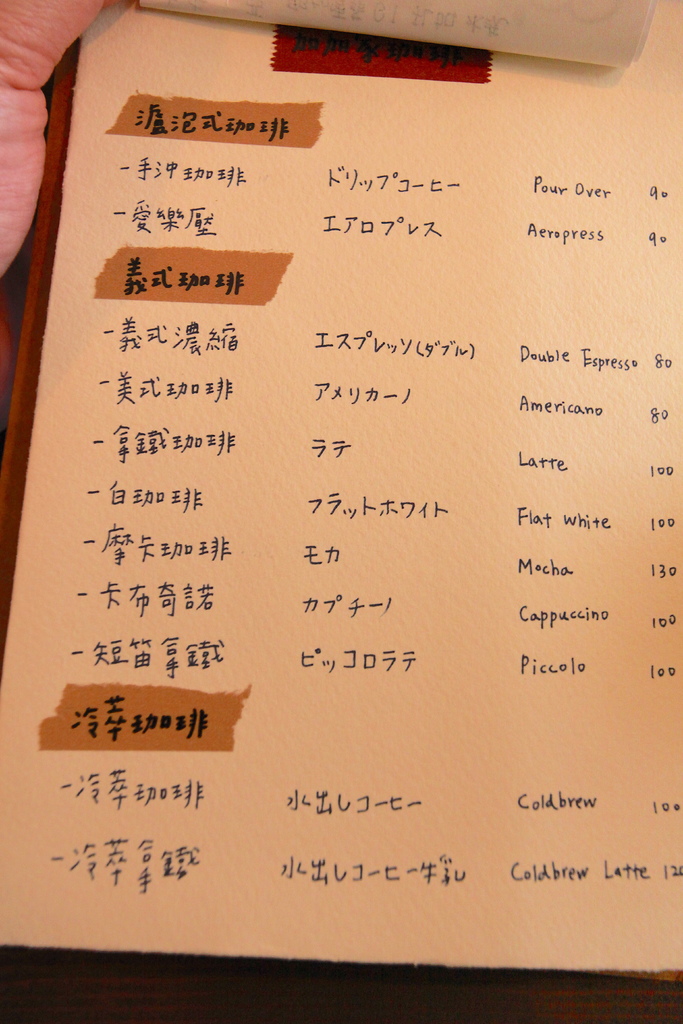 濾泡式珈琲
-手沖珈琲 ドリップコーヒー Pour Over 90
-愛樂壓 エアロプレス Aeropress 90
義式珈琲
-義式濃縮 エスプレッソ(ダブル) Double Espresso 80
-美式珈琲 アメリカーノ Americano 80
-拿鐵珈琲 ラテ Latte 100
-白珈琲 フラットホワイト Flat White 100
-摩卡珈琲 モカ Mocha 130
-卡布奇諾 カプチーノ Cappuccino 100
-短笛拿鐵 ピッコロラテ Piccolo 100
冷萃珈琲
-冷萃珈琲 水出しコーヒー Coldbrew 100
-冷萃拿鐵 水出しコーヒー牛乳 Coldbrew Latte 120